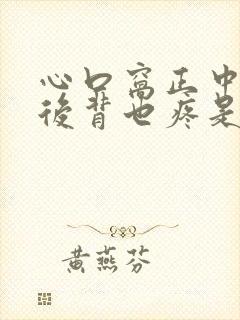 心口窩正中
後背也疼是
黄燕芬